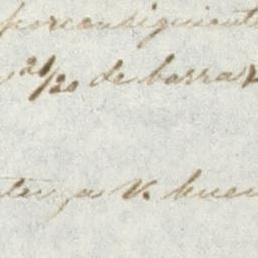 porconsiguiente
21/20 de barras
a V. buen